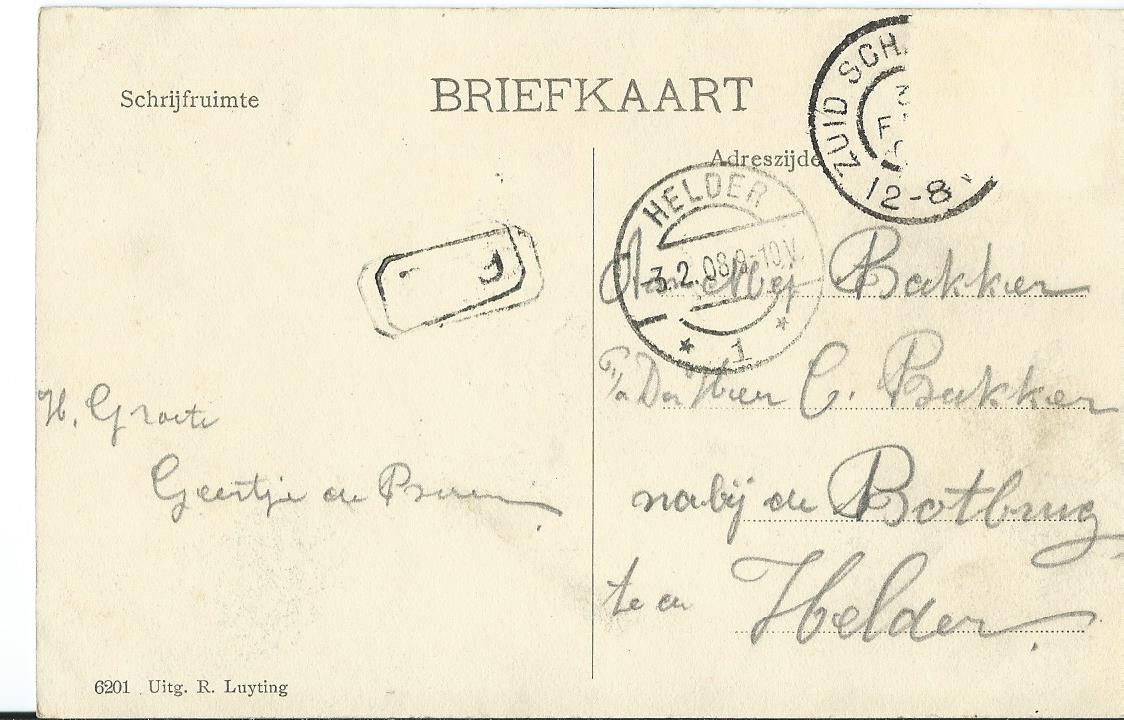 Schrijfruimte
BRIEFKAART
Adreszijde
ZUID SCHA
12-8
HELDER
3.2.08 8-10V.
1
Bakker
C. Bakker
nabij de Botbrug
Helder.
H. Groete
Geertje en
6201 Uitg. R. Luyting